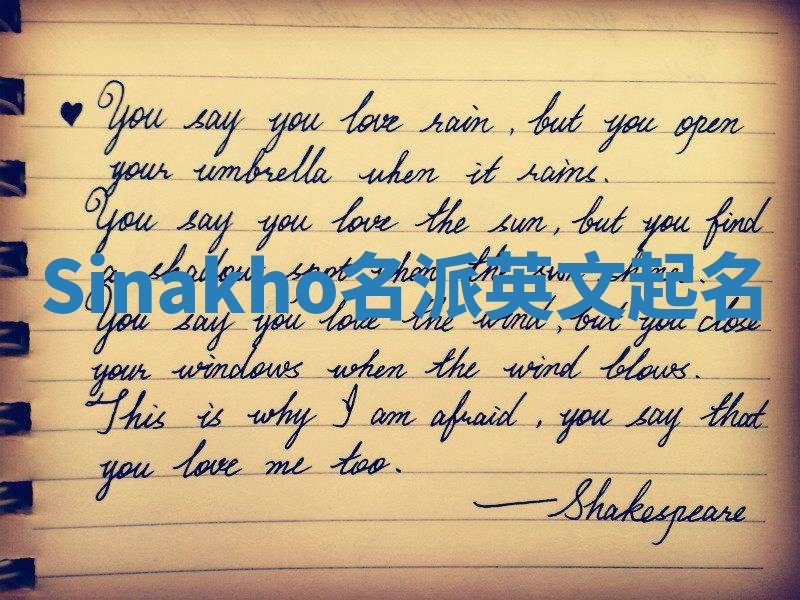 ♥ You say you love rain, but you open
your umbrella when it rains.
You say you love the sun, but you find
a shadow spot when the sun shines.
Sinakho名派英文起名
You say you love the wind, but you close
your windows when the wind blows.
This is why I am afraid, you say that
you love me too.
—Shakespeare